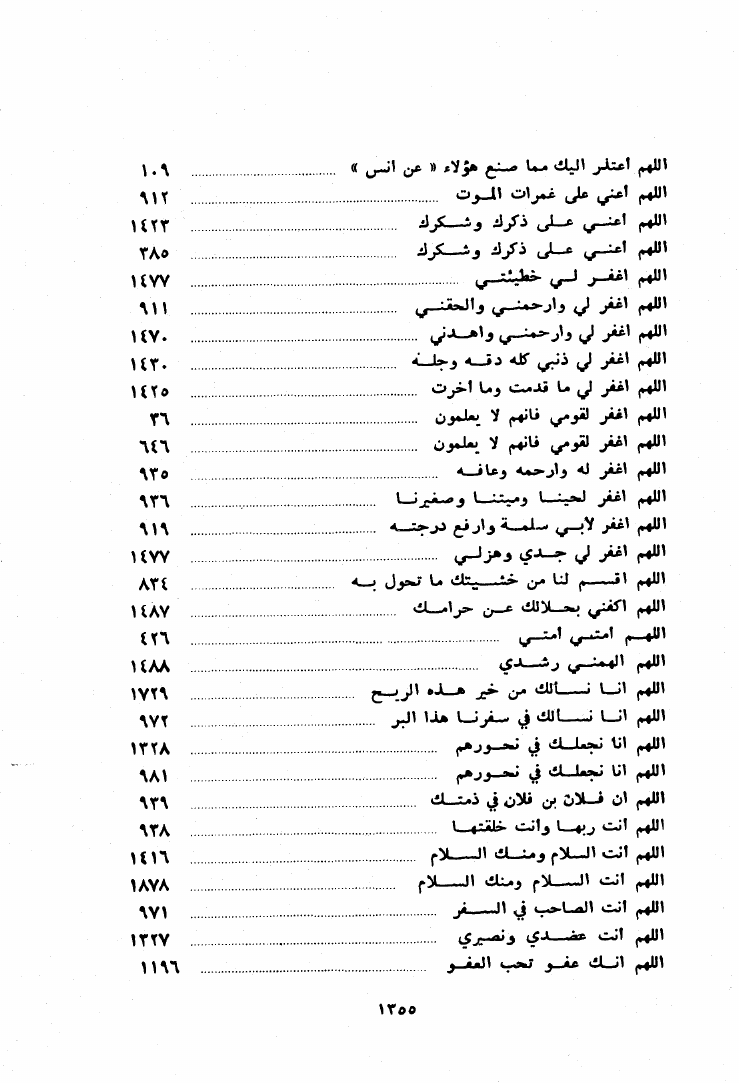 اللهم أعتذر اليك مما صنع هؤلاء « عن انس » ١٠٩
اللهم أعني على غمرات الموت ٩١٢
اللهم أعني على ذكرك وشكرك ١٤٢٣
اللهم أعني على ذكرك وشكرك ٣٨٥
اللهم اغفر لي خطيئتي ١٤٧٧
اللهم اغفر لي وارحمني والحقني ٩١١
اللهم اغفر لي وارحمني واهدني ١٤٧٠
اللهم اغفر لي ذنبي كله دقه وجله ١٤٣٠
اللهم اغفر لي ما قدمت وما أخرت ١٤٢٥
اللهم اغفر لقومي فانهم لا يعلمون ٣٦
اللهم اغفر لقومي فانهم لا يعلمون ٦٤٦
اللهم اغفر له وارحمه وعافه ٩٣٥
اللهم اغفر لحينا وميتنا وصغيرنا ٩٣٦
اللهم اغفر لابي سلمة وارفع درجته ٩١٩
اللهم اغفر لي جدي وهزلي ١٤٧٧
اللهم اقسم لنا من خشيتك ما تحول به ٨٣٤
اللهم اكفني بحلالك عن حرامك ١٤٨٧
اللهم أمتي أمتي ٤٢٦
اللهم الهمني رشدي ١٤٨٨
اللهم انا نسألك من خير هذه الريح ١٧٢٩
اللهم انا نسالك في سفرنا هذا البر ٩٧٢
اللهم انا نجعلك في نحورهم ١٣٢٨
اللهم انا نجعلك في نحورهم ٩٨١
اللهم ان فلان بن فلان في ذمتك ٩٣٩
اللهم أنت ربها وأنت خلقتها ٩٣٨
اللهم أنت السلام ومنك السلام ١٤١٦
اللهم أنت السلام ومنك السلام ١٨٧٨
اللهم أنت الصاحب في السفر ٩٧١
اللهم أنت عضدي ونصيري ١٣٢٧
اللهم انك عفو تحب العفو ١١٩٦
١٣٥٥